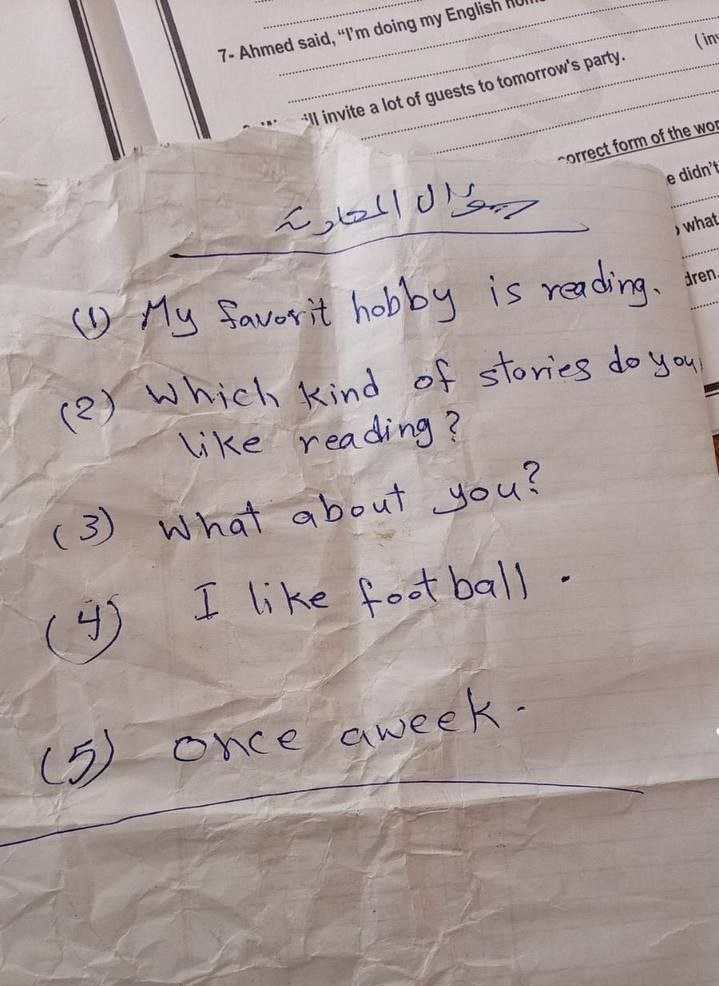 7- Ahmed said, "I'm doing my English
'll invite a lot of guests to tomorrow's party.
orrect form of the
e didn't
what
dren
سؤال المحادثة
(1) My favorit hobby is reading.
(2) Which kind of stories do you
like reading?
(3) What about you?
(4) I like football.
(5) once aweek.